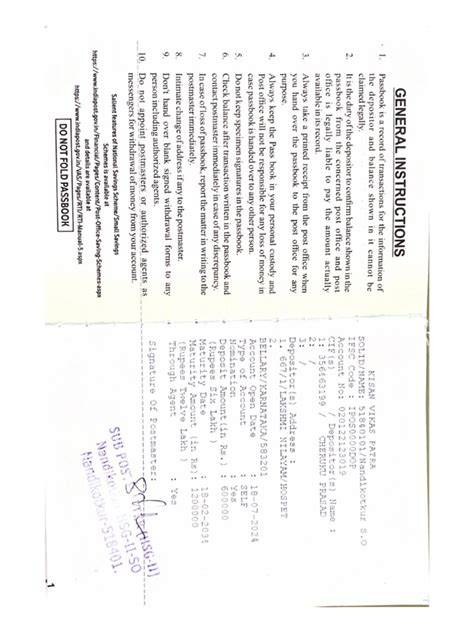 GENERAL INSTRUCTIONS
1. Passbook is a record of transactions for the information of
the depositor and balance shown in it cannot be
claimed legally.
2. It is the duty of the depositor to confirm balance shown in
passbook from the concerned post office and post
office is legally liable to pay the amount actually
available in its record.
3. Always take a printed receipt from the post office when
you hand over the passbook to the post office for any
purpose.
4. Always keep the Pass book in your personal custody and
Post office will not be responsible for any loss of money in
case passbook is handed over to any other person.
5. Do not keep specimen signatures in the passbook.
6. Check balance after transaction written in the passbook and
contact postmaster immediately in case of any discrepancy.
7. In case of loss of passbook, report the matter in writing to the
postmaster immediately.
8. Intimate change of address if any to the postmaster.
9. Don't hand over blank signed withdrawal forms to any
person including agents.
10. Do not appoint postmasters or authorized agents as
messengers for withdrawal of money from your account.
Salient features of National Savings Scheme/Small Savings
Schemes is available at
https://www.indiapost.gov.in/Financial/Pages/Content/Post-Office-Saving-Schemes.aspx
and details are available at
https://www.indiapost.gov.in/VAS/Pages/RTI/RTI-Manual-5.aspx
DO NOT FOLD PASSBOOK
KISAN VIKAS PATRA
SOLID/NAME: 51840101/Nandikotkur S.O
IFSC Code : IPOS0000DOP
Account No: 020122123019
CIF(s) / Depositor(s) Name :
1: 356663299 / CHERUKU PRASAD
2: /
3: /
Depositor(s) Address :
1. 667/1/LAKSHMI NILAYAM/HOSPET
2.
BELLARY/KARNATAKA/583201
Account Open Date : 18-07-2024
Type of Account : SELF
Nomination : Yes
Deposit Amount(in Rs.) : 600000
(Rupees Six Lakh )
Maturity Date : 18-02-2034
Maturity Amount (in Rs): 1200000
(Rupees Twelve Lakh )
Through Agent : Yes
Signature Of Postmaster:
SUB POST
(HSG-II)
Nandikotkur HSG-II-SO
Nandikotkur-518401.
1